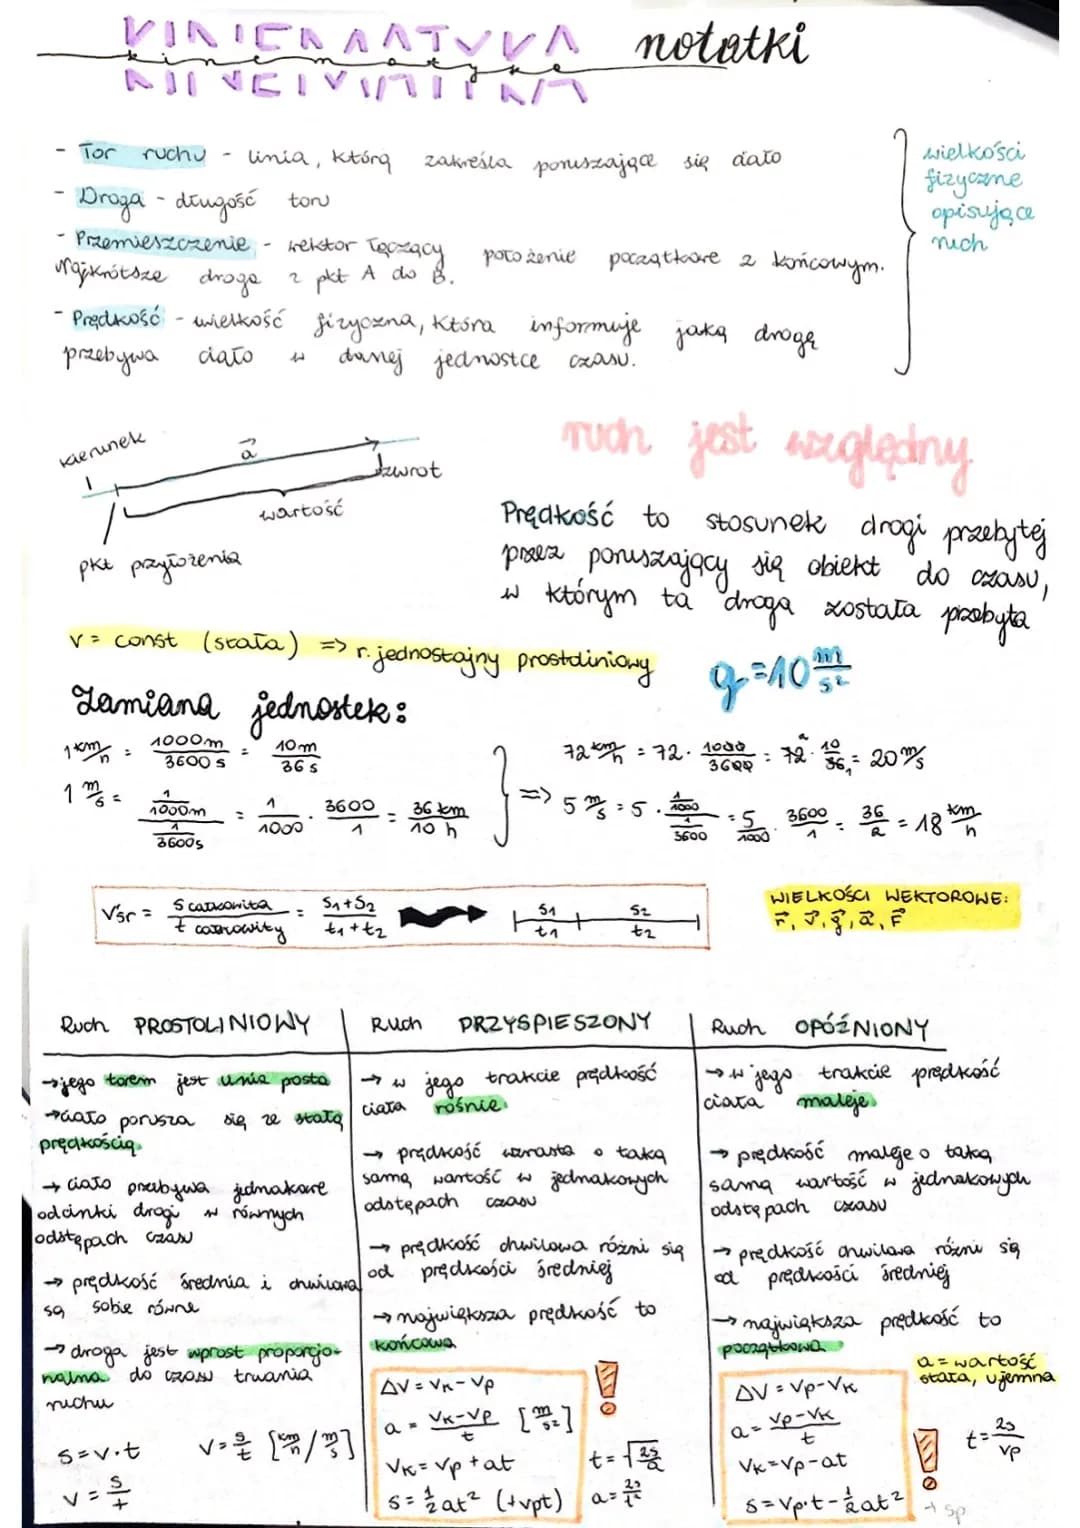 KINEMATYKA notatki
kinematyka
- Tor ruchu - linia, którą zakreśla poruszające się ciało
- Droga - długość toru
- Przemieszczenie - wektor łączący położenie początkowe z końcowym.
Najkrótsze droga z pkt A do B.
- Prędkość - wielkość fizyczna, która informuje jaką drogę
przebywa ciało w danej jednostce czasu.
wielkości
fizyczne
opisujące
ruch
kierunek
a⃗
zwrot
wartość
pkt przyłożenia
ruch jest względny
Prędkość to stosunek drogi przebytej
przez poruszający się obiekt do czasu,
w którym ta droga została przebyta
v = const (stała) => r. jednostajny prostoliniowy
g = 10 m/s²
Zamiana jednostek:
1 km/h = 1000m/3600s = 10m/36s
1 m/s = (1/1000m)/(1/3600s) = 1/1000 · 3600/1 = 36 km/10 h
=>
72 km/h = 72 · 1000/3600 = 72 · 10/36 = 20 m/s
5 m/s = 5 · (1/1000)/(1/3600) = 5/1000 · 3600/1 = 36/2 = 18 km/h
Vśr = s całkowita/t całkowity = s1+s2/t1+t2
s1 s2
t1 t2
WIELKOŚCI WEKTOROWE:
r⃗, v⃗, g⃗, a⃗, F⃗
Ruch PROSTOLINIOWY
→ jego torem jest linia posta
→ ciało porusza się ze stałą
prędkością
→ ciało przebywa jednakowe
odcinki drogi w równych
odstępach czasu
→ prędkość średnia i chwilowa
są sobie równe
→ droga jest wprost proporcjo-
nalna do czasu trwania
ruchu
s = v·t
v = s/t [km/h / m/s]
v = s/t
Ruch PRZYSPIESZONY
→ w jego trakcie prędkość
ciała rośnie
→ prędkość wzrasta o taką
samą wartość w jednakowych
odstępach czasu
→ prędkość chwilowa różni się
od prędkości średniej
→ największa prędkość to
końcowa
ΔV = Vk - Vp
a = Vk-Vp/t [m/s²]
Vk = Vp + at
s = 1/2 at² (+vpt)
!
t = √2s/a
a = 2s/t²
Ruch OPÓŹNIONY
→ w jego trakcie prędkość
ciała maleje
→ prędkość maleje o taką
samą wartość w jednakowych
odstępach czasu
→ prędkość chwilowa różni się
od prędkości średniej
→ największa prędkość to
początkowa
a = wartość
stała, ujemna
ΔV = Vp - Vk
a = Vp-Vk/t
Vk = Vp - at
s = Vp·t - 1/2 at²
!
t = 2s/Vp
+ sp